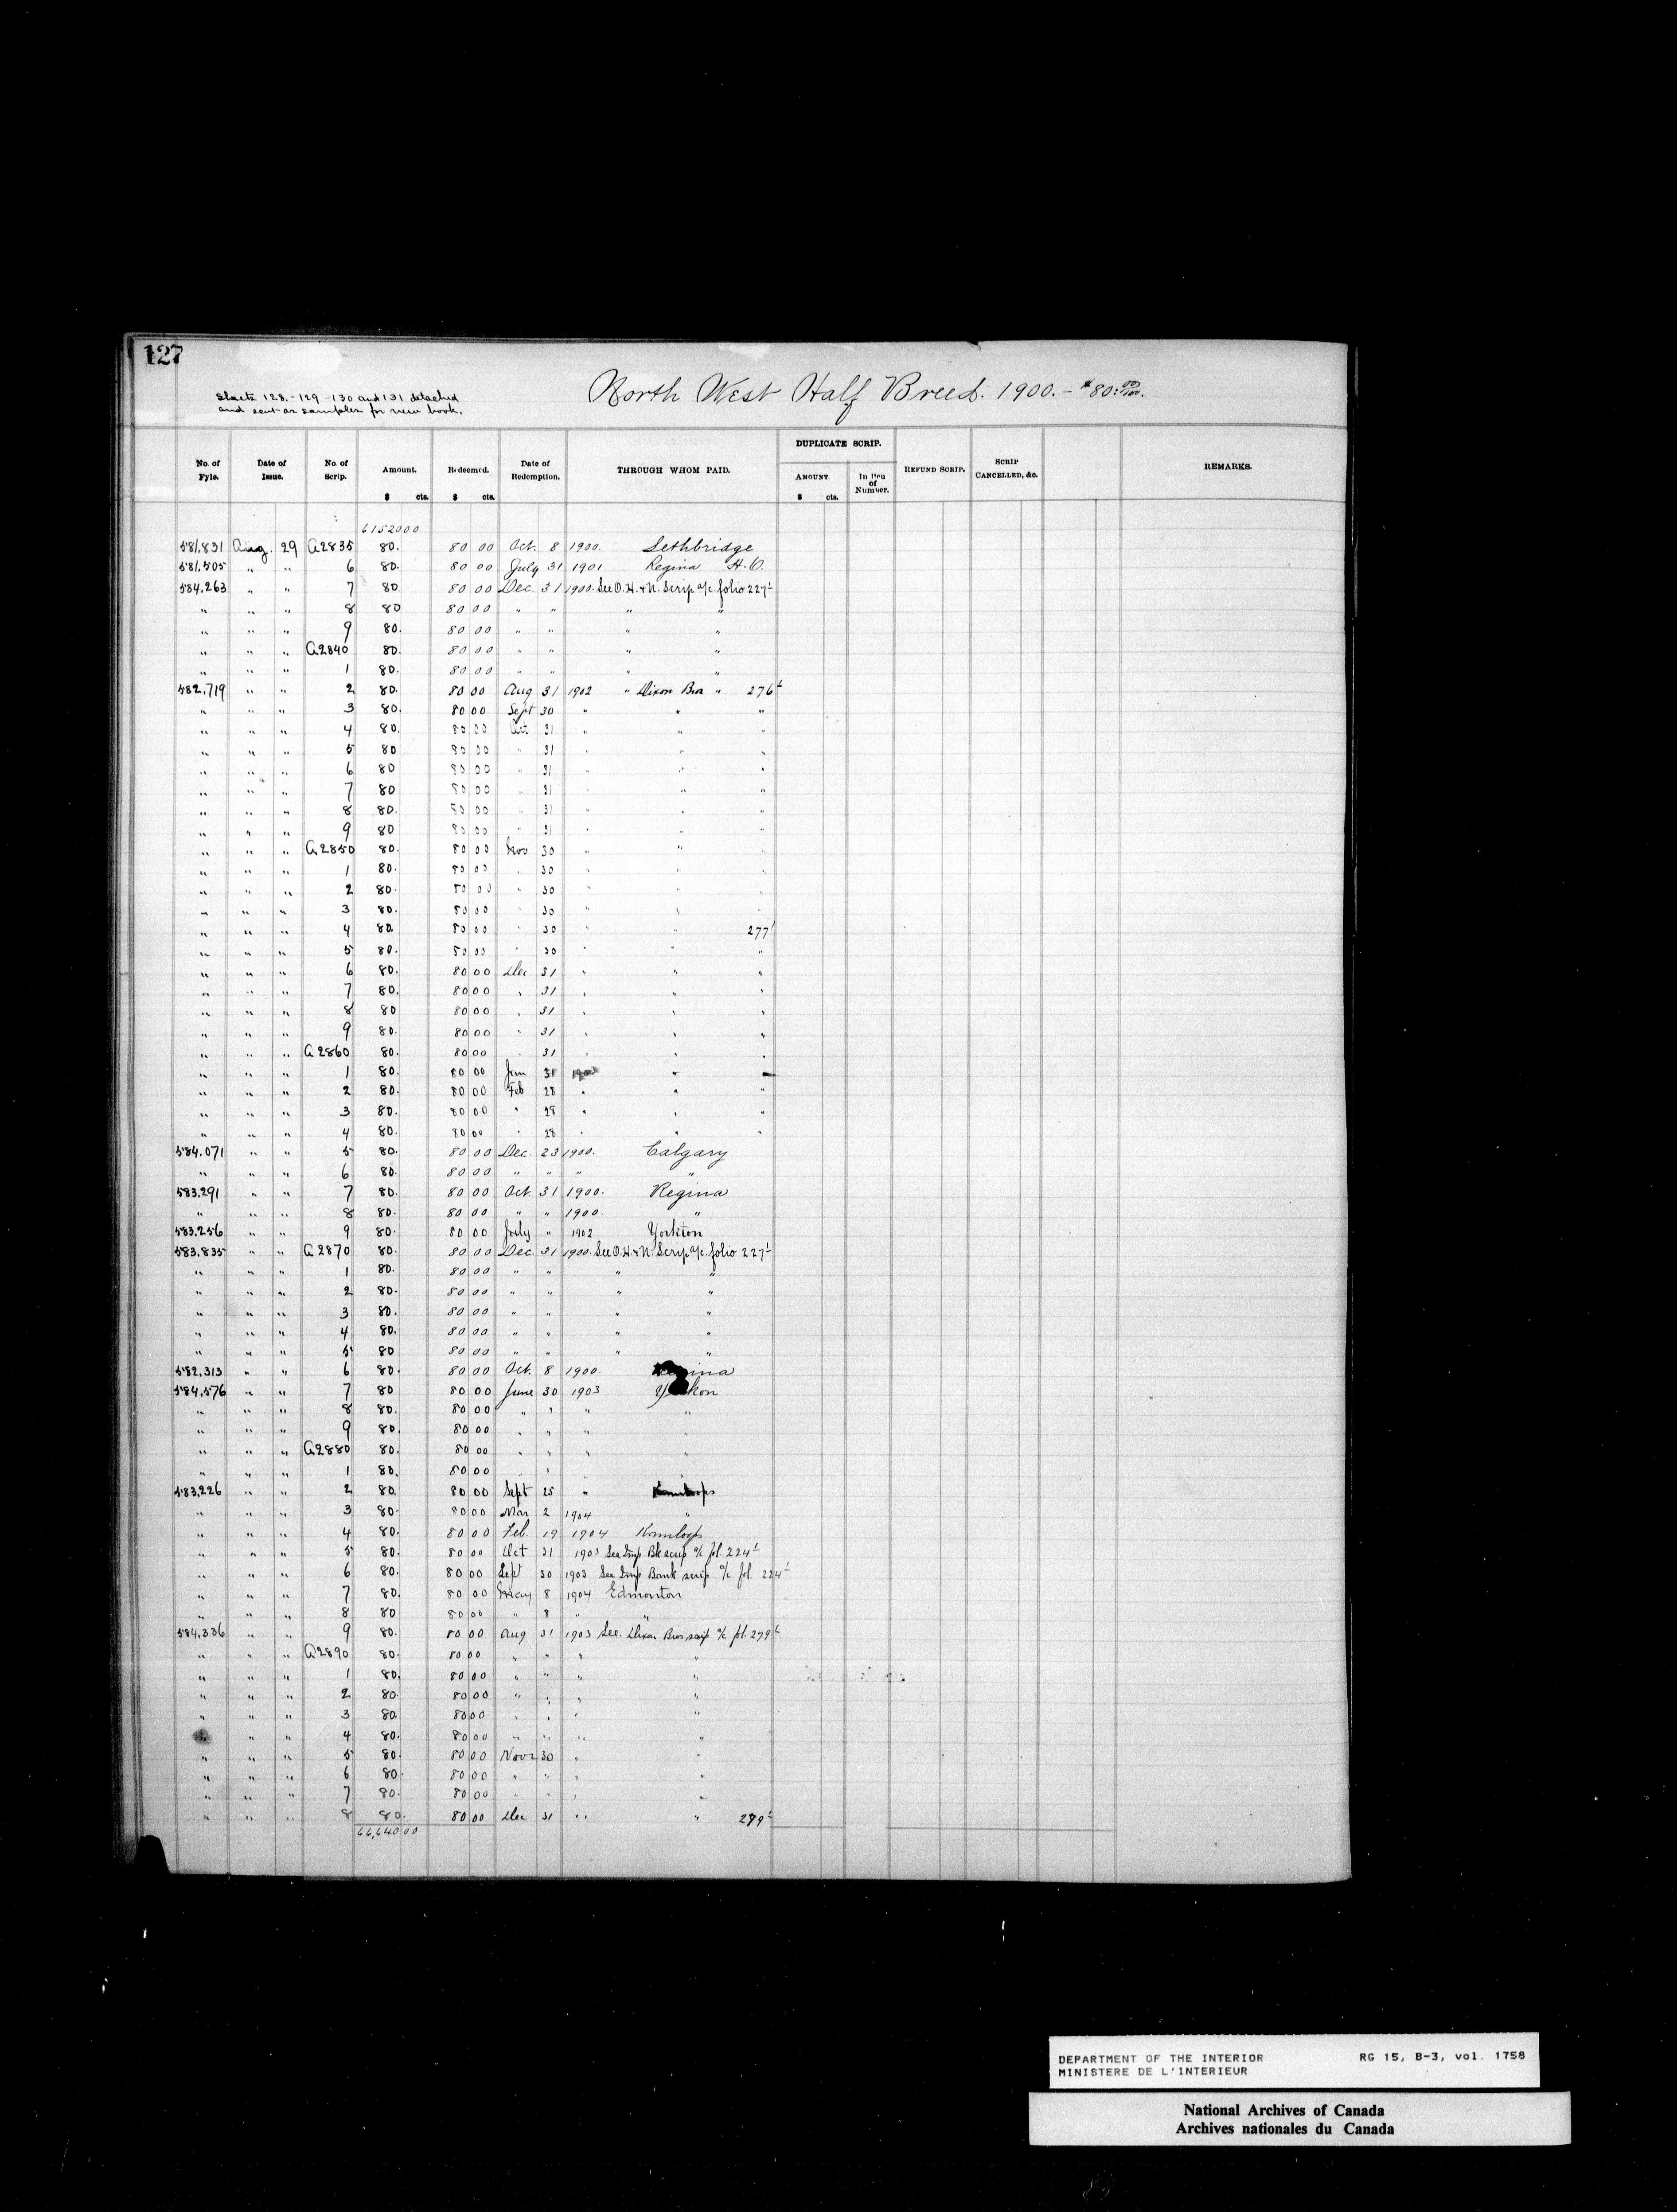 127
Sheets 128 - 129 - 130 and 131 detached
and sent as samples for new book.
North West Half Breed. 1900. - $80.00/100.
No. of Fyle. Date of Issue. No. of Scrip. Amount. $ cts. Redeemed. $ cts. Date of Redemption. THROUGH WHOM PAID. DUPLICATE SCRIP. AMOUNT $ cts. In lieu of Number. REFUND SCRIP. SCRIP CANCELLED, &c. REMARKS.
6152000
581,831 Aug. 29 A2835 80. 80 00 Oct. 8 1900. Lethbridge
581,505 " " 6 80. 80 00 July 31 1901 Regina H.O.
584,263 " " 7 80 80 00 Dec. 31 1900. See O.H. & N. Scrip a/c folio 227
" " " 8 80 80 00 " " " "
" " " 9 80. 80 00 " " " "
" " " A2840 80. 80 00 " " " "
" " " 1 80. 80 00 " " " "
582,719 " " 2 80. 80 00 Aug 31 1902 " Dixon Bros " 276
" " " 3 80. 80 00 Sept 30 " " "
" " " 4 80. 80 00 Oct 31 " " "
" " " 5 80 80 00 " 31 " " "
" " " 6 80 80 00 " 31 " " "
" " " 7 80 80 00 " 31 " " "
" " " 8 80. 80 00 " 31 " " "
" " " 9 80 80 00 " 31 " " "
" " " A2850 80. 80 00 Nov 30 " " "
" " " 1 80. 80 00 " 30 " " "
" " " 2 80. 80 00 " 30 " " "
" " " 3 80. 80 00 " 30 " " "
" " " 4 80. 80 00 " 30 " " 277
" " " 5 80. 80 00 " 30 " " "
" " " 6 80. 80 00 Dec 31 " " "
" " " 7 80. 80 00 " 31 " " "
" " " 8 80 80 00 " 31 " " "
" " " 9 80. 80 00 " 31 " " "
" " " A2860 80. 80 00 " 31 " " "
" " " 1 80. 80 00 Jan 31 1903 " "
" " " 2 80. 80 00 Feb 28 " " "
" " " 3 80. 80 00 " 28 " " "
" " " 4 80. 80 00 " 28 " " "
584,071 " " 5 80. 80 00 Dec. 23 1900. Calgary
" " " 6 80. 80 00 " " " "
583,291 " " 7 80. 80 00 Oct. 31 1900. Regina
" " " 8 80. 80 00 " " 1900. "
583,256 " " 9 80. 80 00 July " 1902 Yorkton
583,835 " " A2870 80. 80 00 Dec. 31 1900. See O.H. & N. Scrip a/c. folio 227
" " " 1 80. 80 00 " " " "
" " " 2 80. 80 00 " " " "
" " " 3 80. 80 00 " " " "
" " " 4 80. 80 00 " " " "
" " " 5 80 80 00 " " " "
582,313 " " 6 80. 80 00 Oct. 8 1900. Regina
584,576 " " 7 80 80 00 June 30 1903 Yukon
" " " 8 80. 80 00 " " " "
" " " 9 80. 80 00 " " " "
" " " A2880 80. 80 00 " " " "
" " " 1 80. 80 00 " " " "
583,226 " " 2 80. 80 00 Sept 25 " Kamloops
" " " 3 80. 80 00 Mar 2 1904 "
" " " 4 80. 80 00 Feb. 19 1904 Kamloops
" " " 5 80. 80 00 Oct 31 1903 See Imp Bk scrip a/c fol. 224
" " " 6 80. 80 00 Sept 30 1903 See Imp Bank scrip a/c fol. 224
" " " 7 80. 80 00 May 8 1904 Edmonton
" " " 8 80 80 00 " 8 " "
584,336 " " 9 80. 80 00 Aug 31 1903 See. Dixon Bros scrip a/c fol. 279
" " " A2890 80. 80 00 " " " "
" " " 1 80. 80 00 " " " "
" " " 2 80. 80 00 " " " "
" " " 3 80 80 00 " " " "
" " " 4 80. 80 00 " " " "
" " " 5 80. 80 00 Novr 30 " "
" " " 6 80. 80 00 " " " "
" " " 7 80. 80 00 " " " "
" " " 8 80. 80 00 Dec 31 " " 279
66,640 00
DEPARTMENT OF THE INTERIOR RG 15, B-3, vol. 1758
MINISTERE DE L'INTERIEUR
National Archives of Canada
Archives nationales du Canada